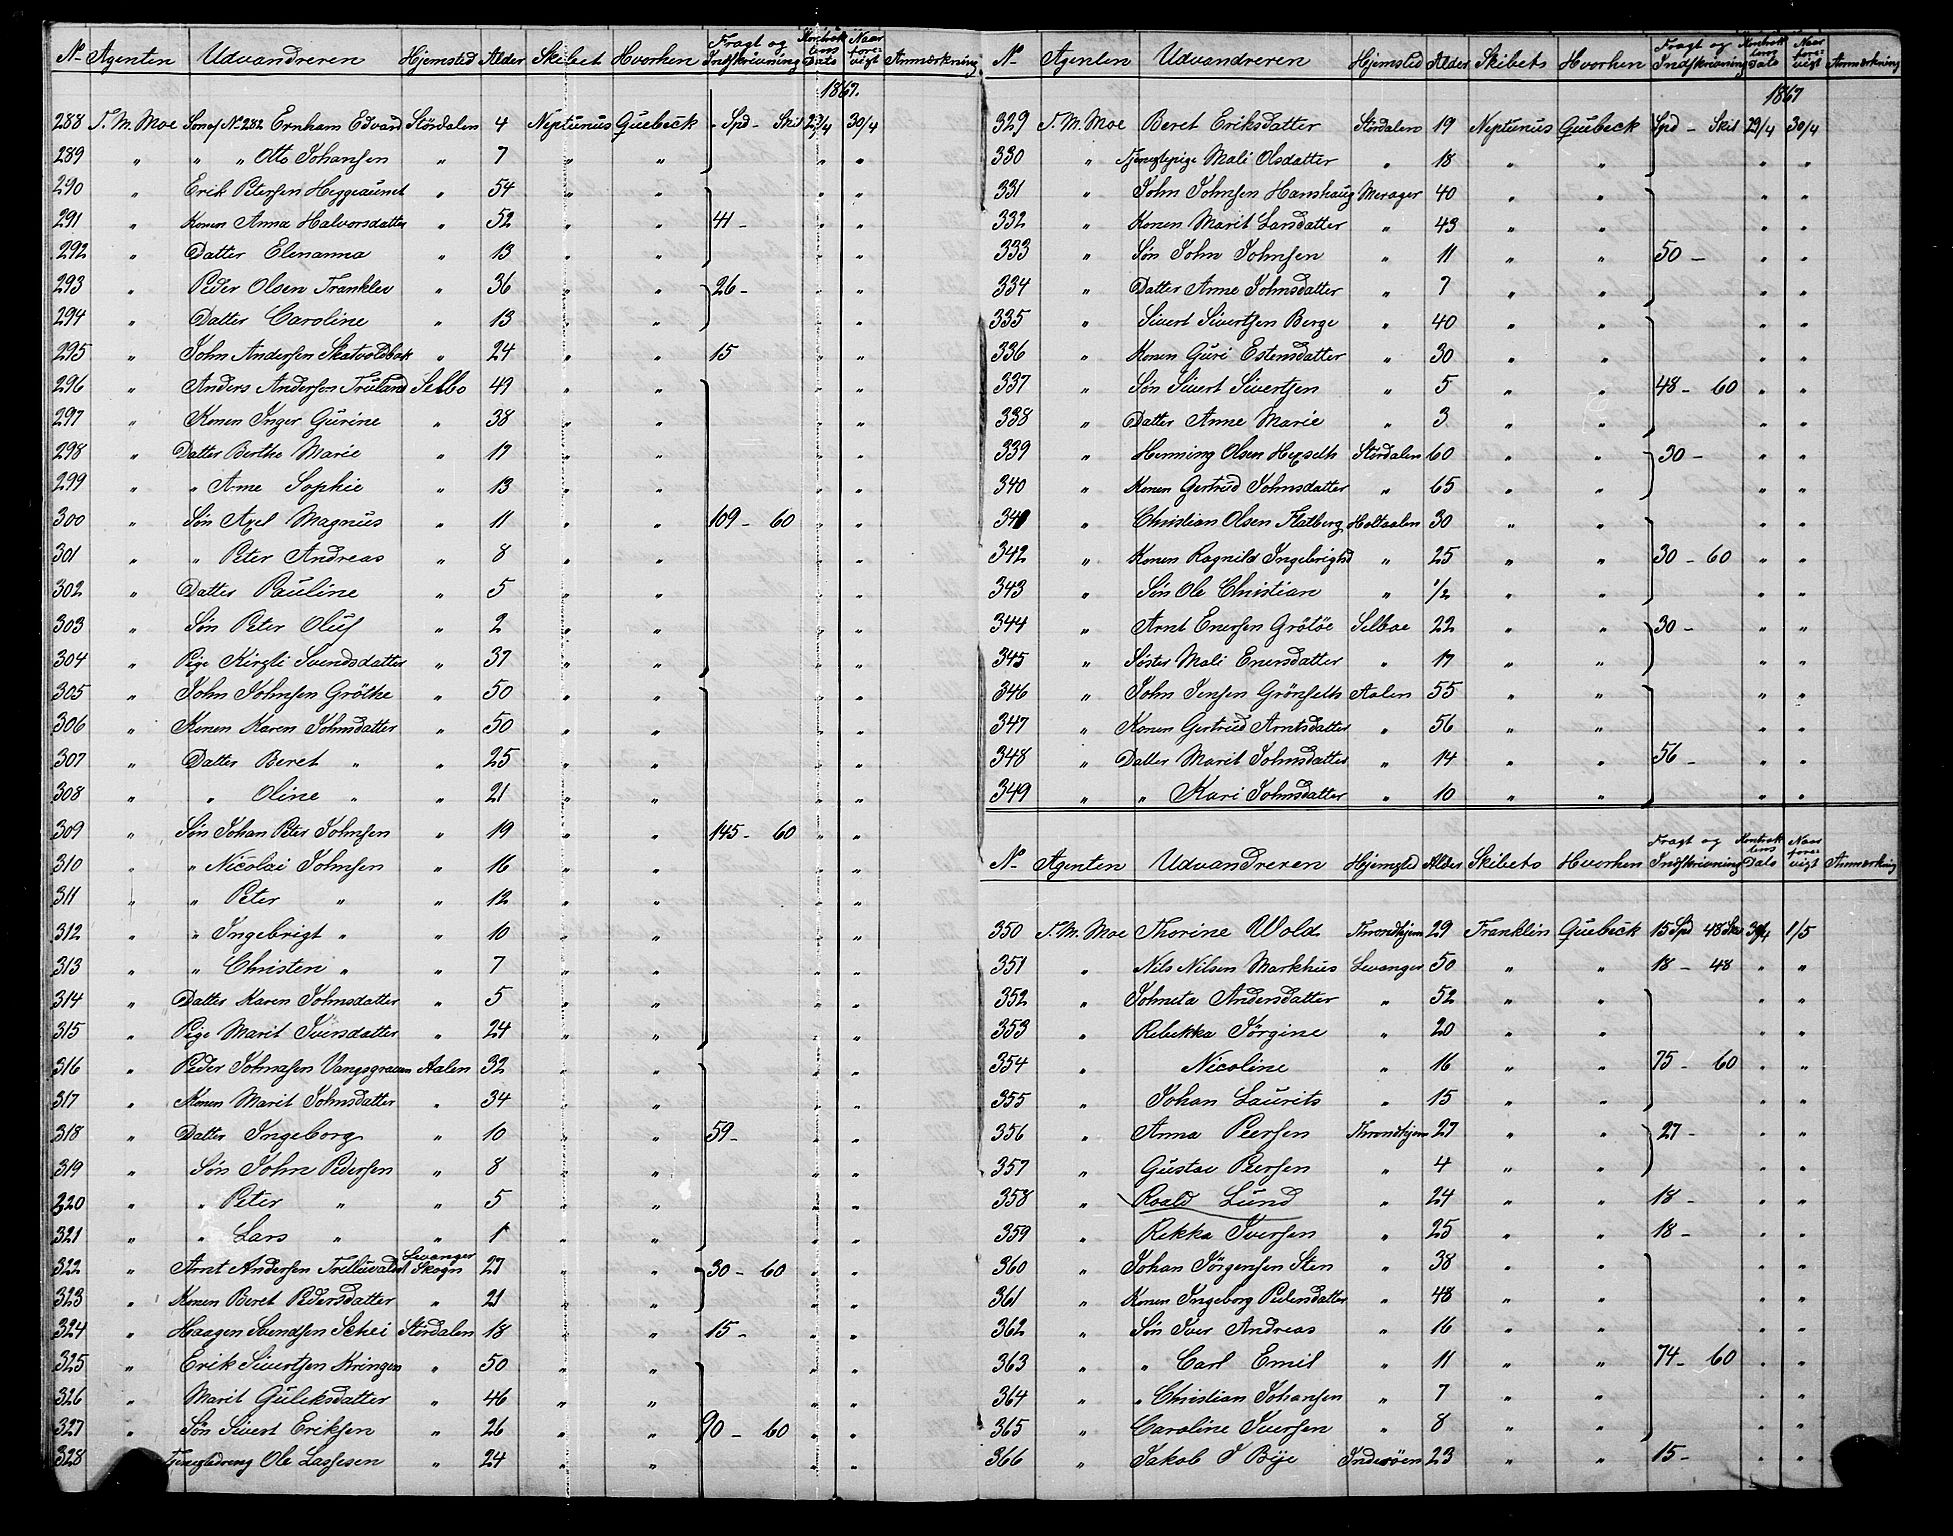 No Agenten Udvandreren Hjemsted Alder Skibet Hvorhen Fragt og Indskrivning Kontraktens Dato Naar forevigt Anmærkning
1867.
288 T. M. Moe Søn af No 282 Ernham Edvard Stördalen 4 Neptunus Quebeck " Spd - Skil 29/4 30/4
289 " " " Otto Johansen " 7 " " " "
290 " Erik Petersen Heggeaunet " 54 " " " "
291 " Konen Anna Halvorsdatter " 52 " " 41 - " "
292 " Datter Elenanna " 13 " " " "
293 " Peder Olsen Franklev " 36 " " 26 - " "
294 " Datter Caroline " 13 " " " "
295 " John Andersen Skatvoldbak " 24 " " 15 " "
296 " Anders Andersen Truland Selbo 49 " " " "
297 " Konen Inger Gurine " 38 " " " "
298 " Datter Berthe Marie " 17 " " " "
299 " " Arne Sophie " 13 " " " "
300 " Søn Axel Magnus " 11 " " 109 - 60 " "
301 " " Peter Andreas " 8 " " " "
302 " Datter Pauline " 5 " " " "
303 " Søn Peter Oluf " 2 " " " "
304 " Pige Kirsti Svendsdatter " 37 " " " "
305 " John Johnsen Gröthe " 50 " " " "
306 " Konen Karen Johnsdatter " 50 " " " "
307 " Datter Beret " " 25 " " " "
308 " " Oline " " 21 " " " "
309 " Søn Johan Peter Johnsen " 19 " " 145 - 60 " "
310 " " Nicolai Johnsen " 16 " " " "
311 " " Peter " " 12 " " " "
312 " " Ingebrigt " " 10 " " " "
313 " " Christen " " 7 " " " "
314 " Datter Karen Johnsdatter " 5 " " " "
315 " Pige Marit Iversdatter " 24 " " " "
316 " Peder Johnsen Vangsgraven Aalen 32 " " " "
317 " Konen Marit Johnsdatter " 34 " " " "
318 " Datter Ingeborg " 10 " " 59 - " "
319 " Søn John Pedersen " 8 " " " "
220 " " Peter " " 5 " " " "
321 " " Lars " " 1 " " " "
322 " Arnt Andersen Levanger Skogn 27 " " 30 - 60 " "
323 " Konen Beret Pedersdatter " 21 " " " "
324 " Haagen Svendsen Schei Stördalen 18 " " 15 - " "
325 " Erik Sivertsen Kringen " 50 " " " "
326 " Marit Guleksdatter " 46 " " " "
327 " Søn Sivert Eriksen " 26 " " 90 - 60 " "
328 Tjenestedreng Ole Lassesen " 24 " " " "
No Agenten Udvandreren Hjemsted Alder Skibets Hvorhen Fragt og Indskrivning Kontraktens Dato Naar forevigt Anmærkning
1867
329 T. M. Moe Beret Eriksdatter Stördalen 19 Neptunus Quebeck Spd - Skil 29/4 30/4
330 " Tjenestepige Mali Olsdatter " 18 " " " "
331 " John Johnsen Hanshaug Merager 40 " " " "
332 " Konen Marit Larsdatter " 43 " " " "
333 " Søn John Johnsen " 11 " " 50 - " "
334 " Datter Anne Johnsdatter " 7 " " " "
335 " Sivert Sivertsen Berge " 40 " " " "
336 " Konen Guri Estensdatter " 30 " " " "
337 " Søn Sivert Sivertsen " 5 " " 48 - 60 " "
338 " Datter Anne Marie " 3 " " " "
339 " Henning Olsen Hexseth Stördalen 60 " " 30 - " "
340 " Konen Gertrud Johnsdatter " 65 " " " "
341 " Christian Olsen Flatberg Holtaalen 30 " " " "
342 " Konen Ragnild Ingebrigtsd " 25 " " 30 - 60 " "
343 " Søn Ole Christian " 1/2 " " " "
344 " Arnt Enersen Grötöe Selboe 22 " " 30 - " "
345 " Søster Mali Enersdatter " 17 " " " "
346 " John Jensen Grönseth Aalen 55 " " " "
347 " Konen Gertrud Arntsdatter " 56 " " " "
348 " Datter Marit Johnsdatter " 14 " " 56 - " "
349 " " Kari Johnsdatter " 10 " " " "
No Agenten Udvandreren Hjemsted Alder Skibets Hvorhen Fragt og Indskrivning Kontraktens Dato Naar forevigt Anmærkning
350 T. M. Moe Thorine Wold Throndhjem 29 Franklin Quebeck 15 Spd 48 Sk 30/4 1/5
351 " Nils Nilsen Markhus Levanger 50 " " 18 - 48 " "
352 " Johneta Andersdatter " 52 " " " "
353 " Rebekka Jörgine " 20 " " " "
354 " Nicoline " 16 " " 75 - 60 " "
355 " Johan Laurits " 15 " " " "
356 " Anna Peersen Throndhjem 27 " " 27 - " "
357 " Gustav Peersen " 4 " " " "
358 " Roald Lund " 24 " " 18 - " "
359 " Rikka Iversen " 25 " " 18 - " "
360 " Johan Jörgensen Sten " 38 " " " "
361 " Konen Ingeborg Petersdatter " 48 " " " "
362 " Søn Iver Andreas " 16 " " " "
363 " " Carl Emil " 11 " " 74 - 60 " "
364 " " Christian Johansen " 7 " " " "
365 " Caroline Iversen " 8 " " " "
366 " Jakob J Böje Inderöen 23 " " 15 - " "